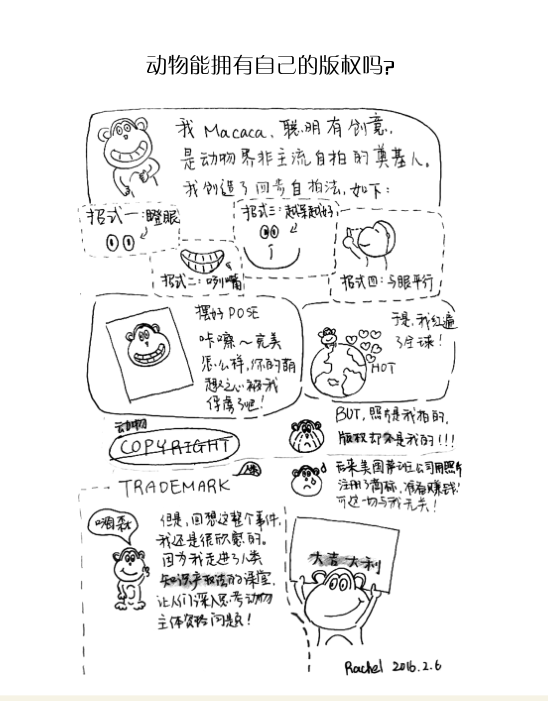 动物能拥有自己的版权吗?
我 Macaca, 聪明有创意,
是动物界非主流自拍的奠基人。
我创造了四步自拍法, 如下:
招式一:瞪眼
招式二:咧嘴
招式三:越呆越好
招式四:与眼平行
摆好POSE
咔嚓～完美
怎么样, 你的萌
想之心被我
俘虏了吧!
于是, 我红遍
了全球!
HOT
动物
COPYRIGHT
BUT, 照片是我拍的,
版权却不是我的!!!
TRADEMARK
后来美国某公司用照片
注册了商标, 准备赚钱!
可这一切与我无关!
嗨森
但是, 回想这整个事件,
我还是很欣慰的。
因为我走进了人类
知识产权法的课堂,
让人们深入思考动物
主体资格问题!
大吉大利
Rachel 2016.2.6